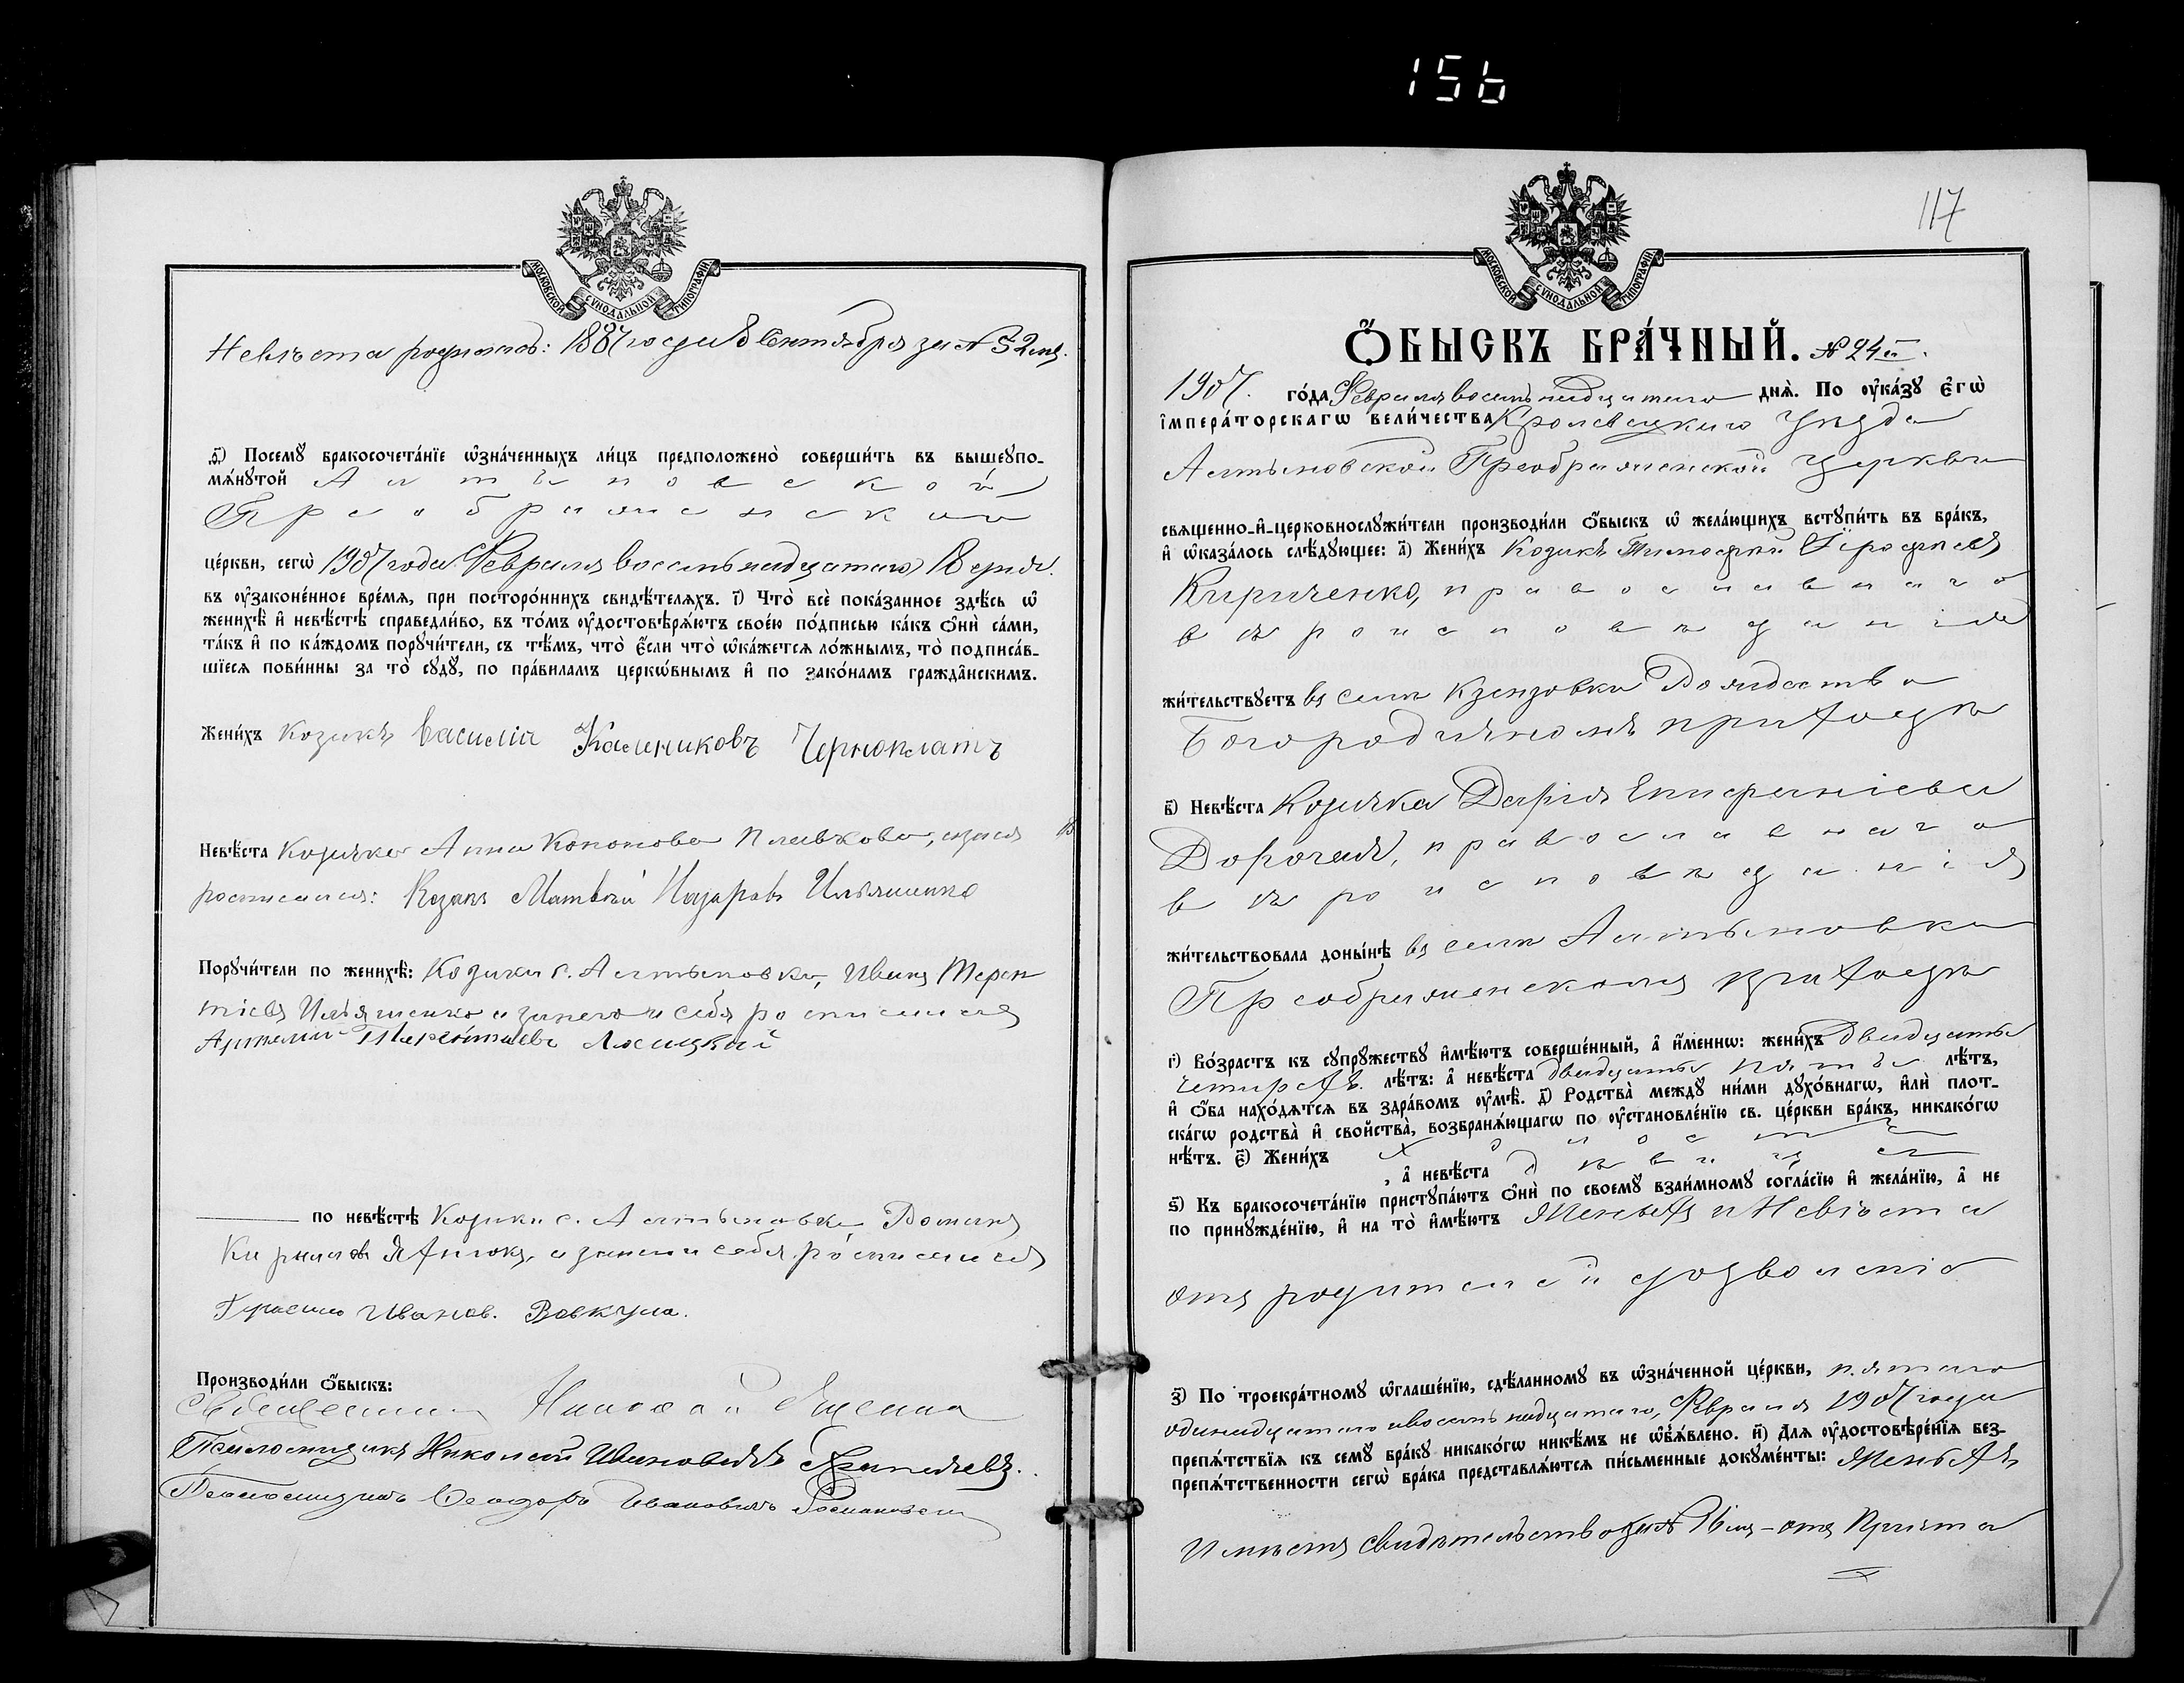 156
117
МОСКОВСКОЙ СѴНОДАЛЬНОЙ ТИПОГРАФІИ
Невѣста родилась: 1887 года 8 Сентября за № 52мъ.
Ѳ҃) Посемꙋ бракосочета́нїе ѡ҆зна́ченныхъ ли́цъ предположено̀ соверши́ть въ вышеꙋпо-
мѧ́нꙋтой Алтыновской
Преображенской
це́ркви, сегѡ̀ 1907 года Февраля восемьнадцатаго 18 дня.
въ ᲂу҆зако́ненное вре́мѧ, при посторо́ннихъ свидѣ́телѧхъ. І҃) Что̀ всѐ пока́занное здѣ́сь ѡ҆
женихѣ̀ и҆ невѣ́стѣ справедли́во, въ то́мъ ᲂу҆достовѣрѧ́ютъ своею по́дписью ка́къ ѻ҆нѝ са́ми,
та́къ и҆ по ка́ждомъ порꙋчи́тели, съ тѣ́мъ, что̀ є҆́сли что̀ ѡ҆ка́жетсѧ ло́жнымъ, то̀ подписа́в-
шїесѧ пови́нны за то̀ сꙋдꙋ̀, по пра́виламъ церко́внымъ и҆ по зако́намъ гражда́нскимъ.
Жени́хъ Козакъ Василій Калениковъ Черноплатъ
Невѣ́ста Козачка Анна Кононова
росписался: Козакъ Матвѣй Назаровъ Ильяшенко
Порꙋчи́тели по женихѣ̀: Козаки с. Алтыновки, Иванъ Терен
тіевъ Ильяшенко а за него и себя росписался
Артемій Терентіевъ
по невѣ́стѣ Козаки с. Алтыновки Романъ
Кириловъ а за него и себя росписался
Герасим Иванов. Вовкула.
Производи́ли ѻ҆́быскъ:
Священникъ Николай
Псаломщикъ Николай Ивановичъ
Псаломщикъ Ѳеодоръ Ивановичъ
МОСКОВСКОЙ СѴНОДАЛЬНОЙ ТИПОГРАФІИ
Ѻ҆́БЫСКЪ БРА́ЧНЫЙ. № 24й.
1907. го́да Февраля восемьнадцатаго днѧ̀. По ᲂу҆ка́зꙋ Є҆гѡ̀
І҆мпера́торскагѡ вели́чества Кролевецкаго Уѣзда
Алтыновской Преображенской Церкви
свѧщенно-и҆-церковнослꙋжи́тели производи́ли ѻ҆́быскъ ѡ҆ жела́ющихъ встꙋпи́ть въ бра́къ,
и҆ ѡ҆каза́лось слѣ́дꙋющее: а҃) Жени́хъ Козакъ Тимофей
Кириченко, православнаго
вѣроисповѣданія
жи́тельствꙋетъ въ селѣ Рождество
Богородичномъ приходѣ
в҃) Невѣ́ста Козачка Дарія Епифаніева
православнаго
вѣроисповѣданія
жи́тельствовала доны́нѣ въ селѣ Алтыновкѣ
Преображенскомъ приходѣ
г҃) Во́зрастъ къ сꙋпрꙋжествꙋ и҆мѣ́ютъ соверше́нный, а҆ и҆́меннѡ: жени́хъ двадцать
четырехъ лѣ́тъ: а҆ невѣ́ста двадцать пять лѣ́тъ,
и҆ ѻ҆́ба нахо́дѧтсѧ въ здра́вомъ ᲂу҆мѣ̀. д҃) Родства̀ междꙋ ни́ми дꙋхо́внагѡ, и҆лѝ плот-
ска́гѡ родства̀ и҆ свойства̀, возбранѧ́ющагѡ по ᲂу҆становле́нїю св. це́ркви бра́къ, никако́гѡ
нѣ́тъ. є҃) Жени́хъ холостъ
, а҆ невѣ́ста дѣвица
ѕ҃) Къ бракосочета́нїю пристꙋпа́ютъ ѻ҆нѝ по своемꙋ взаи́мномꙋ согла́сїю и҆ жела́нїю, а҆ не
по принꙋжде́нїю, и҆ на то̀ и҆мѣ́ютъ Женихъ и Невѣста
отъ родителей дозволеніе
з҃) По троекра́тномꙋ ѡ҆глаше́нїю, сдѣ́ланномꙋ въ ѡ҆зна́ченной це́ркви, пятаго
одинадцатаго и восемьнадцатаго, Февраля 1907 года
препѧ́тствїѧ къ семꙋ бра́кꙋ никако́гѡ никѣ́мъ не ѡ҆б̾ѧ́влено. и҃) Длѧ ᲂу҆достовѣре́нїѧ без-
препѧ́тственности сегѡ̀ бра́ка представлѧ́ютсѧ пи́сьменные докꙋме́нты: Женихъ
имѣетъ свидѣтельство за № 16мъ - отъ Причта